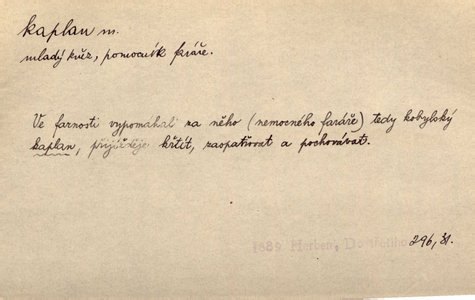 kaplan m.
mladý kněz, pomocník faráře.
Ve farnosti vypomáhal za něho (nemocného faráře) tedy kobylský
kaplan, přijížděje křtít, zaopatřovat a pochovávat.
1889 Herben, Do
296, 31.